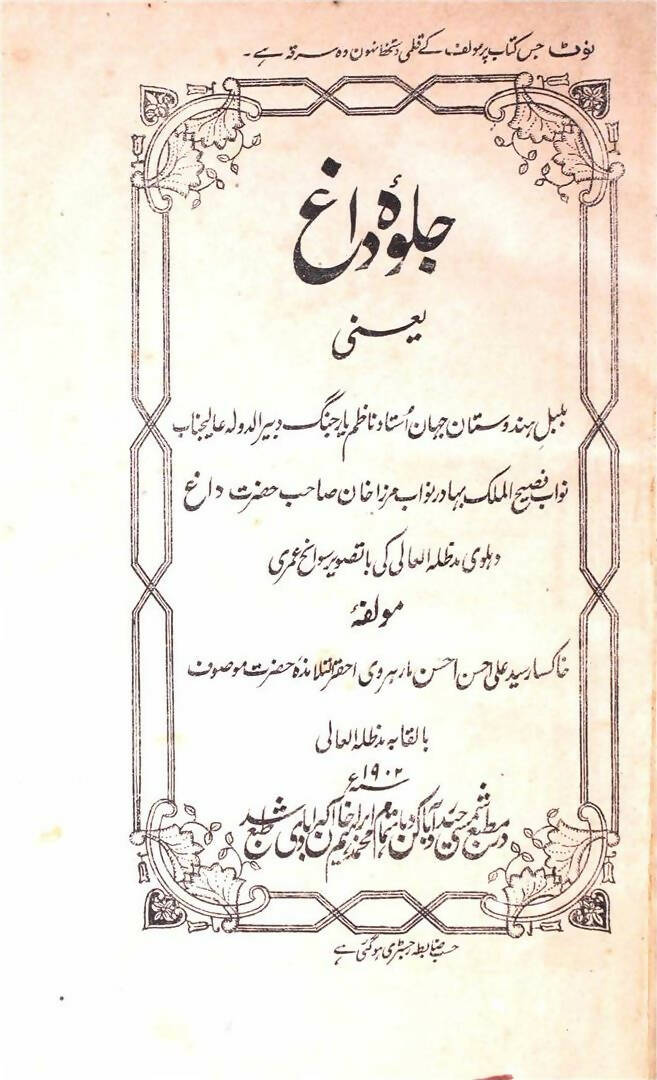 نوٹ جس کتاب پر مولف کے قلمی دستخط نہون وہ سرقہ ہے۔
جلوۂ داغ
یعنی
بلبلِ ہندوستان جہان اُستاد ناظم یار جنگ دبیر الدولہ عالیجناب
نواب فصیح الملک بہادر نواب مرزا خان صاحب حضرت داغ
دہلوی مدظلہ العالی کی باتصویر سوانح عمری
مولفۂ
خاکسار سید علی احسن احسن مارہروی احقر التلامذہ حضرت موصوف
بالقابہ مدظلہ العالی
سنہ ۱۹۰۲ء
در مطبع شمسی حیدرآباد دکن باہتمام محمد ابراہیم خان اکبرآبادی طبع شد
حسب ضابطہ رجسٹری ہوگئی ہے